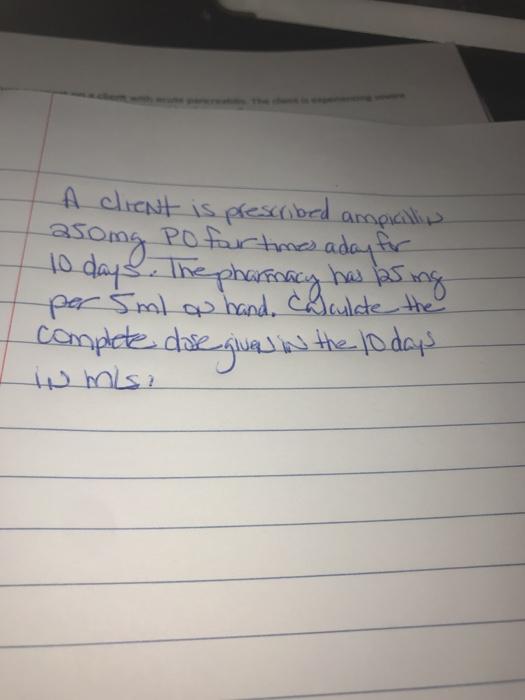 on a client with acute pancreatitis. The client is experiencing severe
A client is prescribed ampicillin
250mg PO four times a day for
10 days. The pharmacy has 125 mg
per 5ml on hand. Calculate the
complete dose given in the 10 days
in mls?